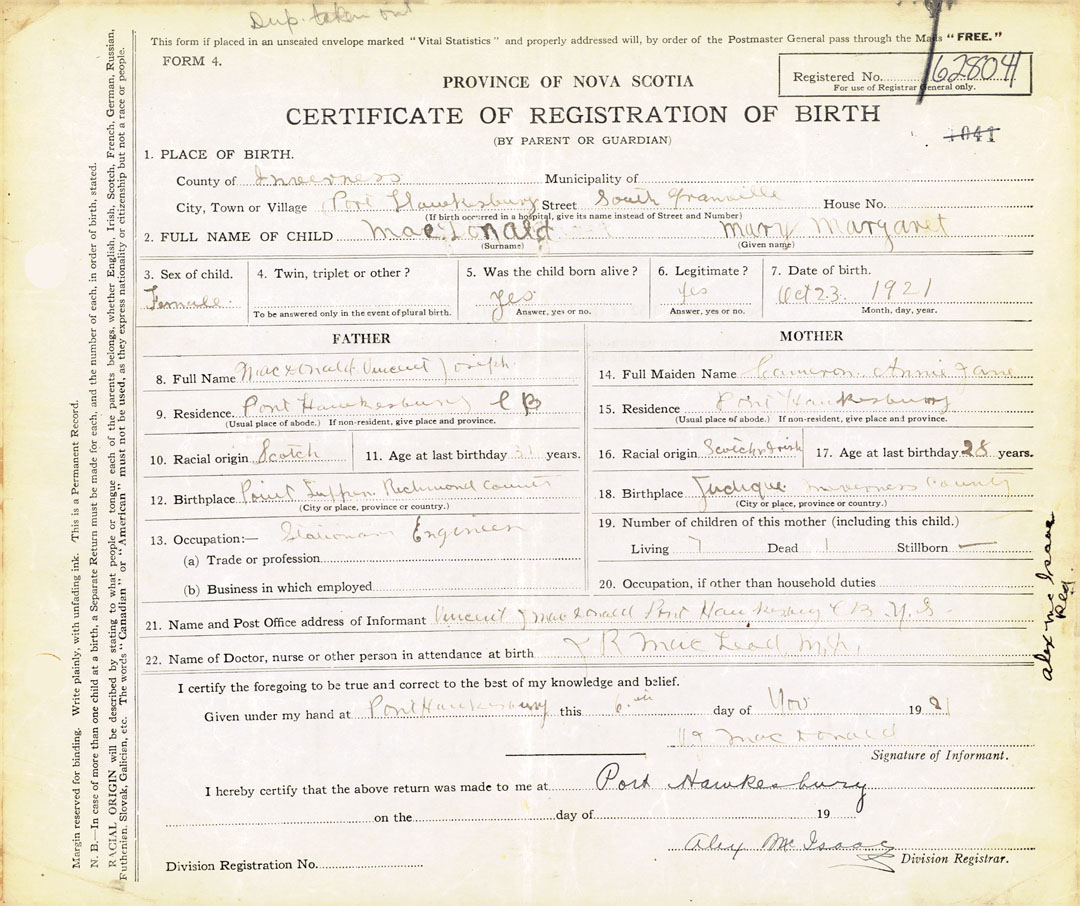 Dup. taken out
This form if placed in an unsealed envelope marked "Vital Statistics" and properly addressed will, by order of the Postmaster General pass through the Mails "FREE."
FORM 4.
PROVINCE OF NOVA SCOTIA
Registered No. 62804
For use of Registrar General only.
CERTIFICATE OF REGISTRATION OF BIRTH
(BY PARENT OR GUARDIAN)
1041
1. PLACE OF BIRTH.
County of Inverness Municipality of
City, Town or Village Port Hawkesbury Street South Granville House No.
(If birth occurred in a hospital, give its name instead of Street and Number)
2. FULL NAME OF CHILD MacDonald Mary Margaret
(Surname) (Given name)
3. Sex of child. 4. Twin, triplet or other? 5. Was the child born alive? 6. Legitimate? 7. Date of birth.
Female. yes yes Oct 23. 1921
To be answered only in the event of plural birth. Answer, yes or no. Answer, yes or no. Month, day, year.
FATHER MOTHER
8. Full Name MacDonald Vincent Joseph 14. Full Maiden Name Cameron Annie Jane
9. Residence. Port Hawkesbury C B 15. Residence Port Hawkesbury
(Usual place of abode.) If non-resident, give place and province. (Usual place of abode.) If non-resident, give place and province.
10. Racial origin Scotch 11. Age at last birthday years. 16. Racial origin Scotch & Irish 17. Age at last birthday 28 years.
12. Birthplace Point Tupper. Richmond County 18. Birthplace Judique Inverness County
(City or place, province or country.) (City or place, province or country.)
13. Occupation:— Stationary Engineer 19. Number of children of this mother (including this child.)
(a) Trade or profession Living 7 Dead 1 Stillborn —
(b) Business in which employed 20. Occupation, if other than household duties
21. Name and Post Office address of Informant Vincent J MacDonald Port Hawkesbury C B N S
22. Name of Doctor, nurse or other person in attendance at birth R MacLeod
I certify the foregoing to be true and correct to the best of my knowledge and belief.
Given under my hand at Port Hawkesbury this 6th day of Nov 1921
MacDonald
Signature of Informant.
I hereby certify that the above return was made to me at Port Hawkesbury
on the day of 19
Alex McIsaac
Division Registrar.
Division Registration No.
Margin reserved for binding. Write plainly, with unfading ink. This is a Permanent Record.
N. B.—In case of more than one child at a birth, a Separate Return must be made for each, and the number of each, in order of birth, stated.
RACIAL ORIGIN will be described by stating to what people or tongue each of the parents belongs, whether English, Irish, Scotch, French, German, Russian,
Ruthenian, Slovak, Galician, etc. The words "Canadian" or "American" must not be used, as they express nationality or citizenship but not a race or people.
Alex McIsaac
Reg.